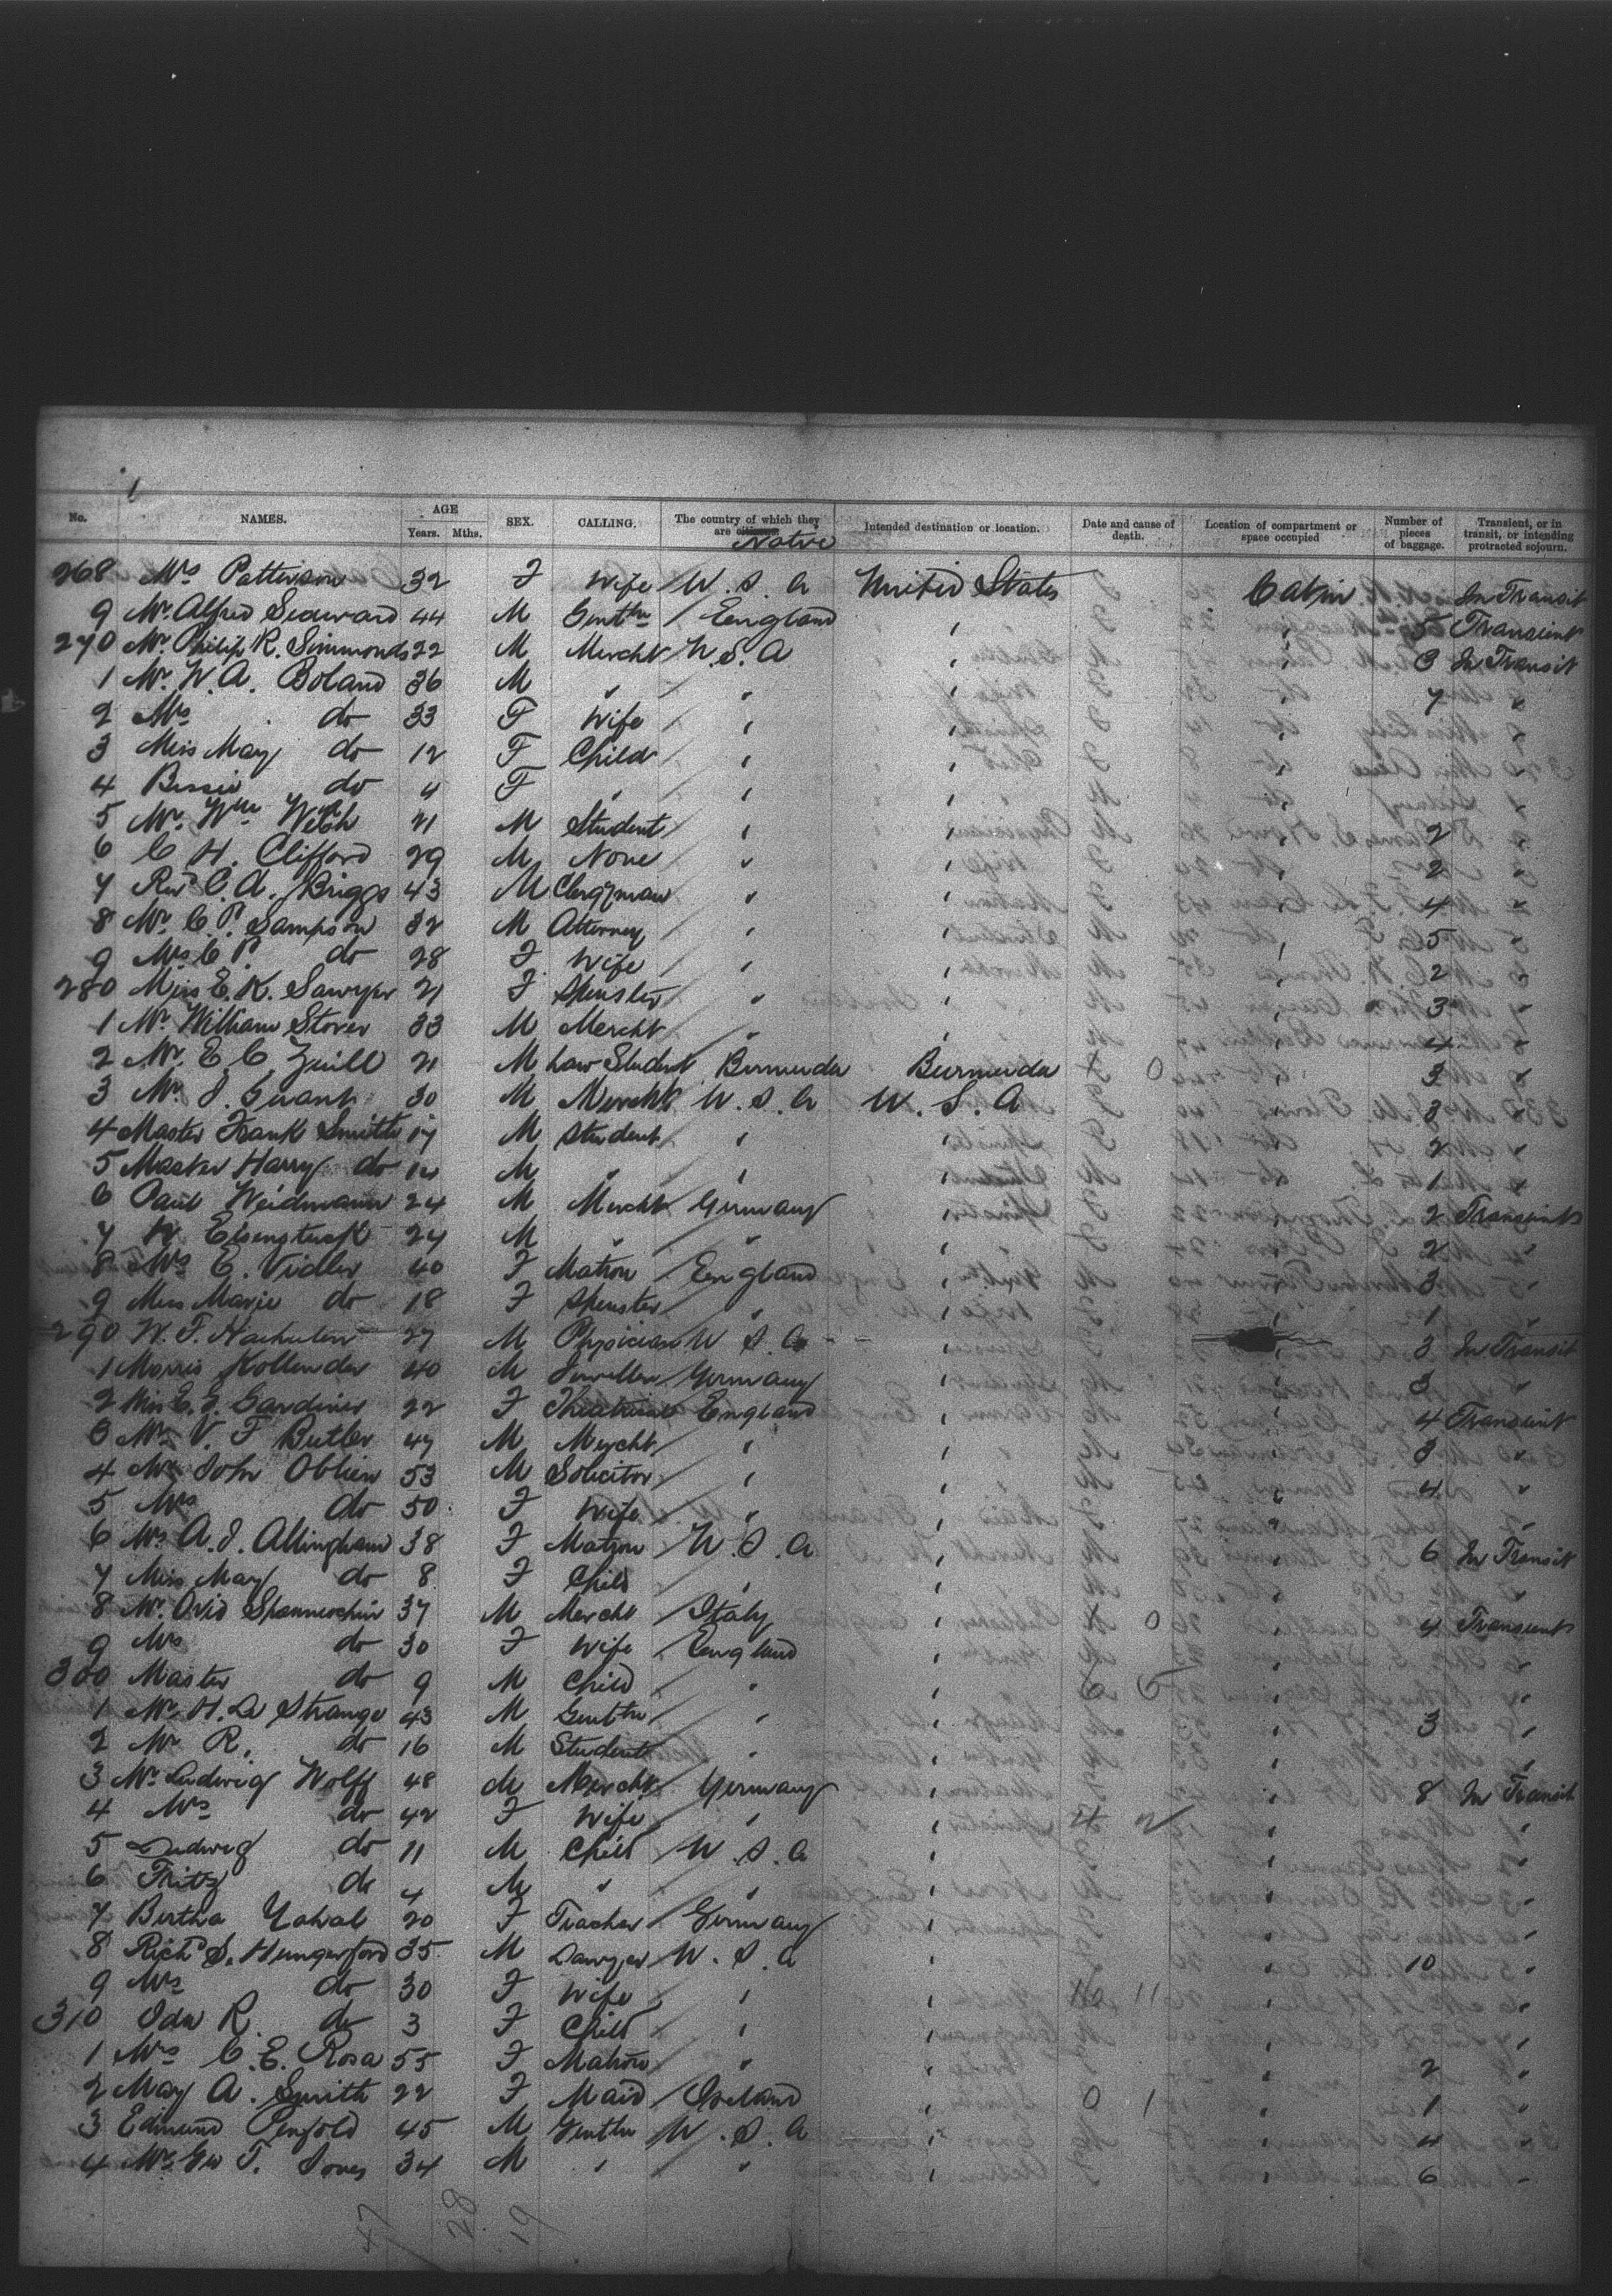 1
No. NAMES. AGE Years. Mths. SEX. CALLING. The country of which they are citizens. Native Intended destination or location. Date and cause of death. Location of compartment or space occupied Number of pieces of baggage. Transient, or in transit, or intending protracted sojourn.
268 Mrs Patterson 32 F Wife U. S. A United States Cabin In Transit
9 Mr. Alfred Seaward 44 M Gentln England " " 5 Transient
270 Mr. Philip R. Simmonds 22 M Mercht U.S.A " " 3 In Transit
1 Mr. W. A. Boland 36 M " " " " 7 "
2 Mrs do 33 F Wife " " " "
3 Miss May do 12 F Child " " " "
4 Bessie do 4 F " " " " "
5 Mr. Wm 21 M Student " " " 2 "
6 C H. Clifford 29 M None " " " 2 "
7 Revd C. A. Briggs 43 M Clergyman " " " 4 "
8 Mr. C. P. Sampson 32 M Attorney " " " 5 "
9 Mrs C P. do 28 F Wife " " " 2 "
280 Miss E. K. Sawyer 21 F Spinster " " " 3 "
1 Mr. William Stover 33 M Mercht " " " 4 "
2 Mr. E. C. Zuill 21 M Law Student Bermuda Bermuda 0 " 3 "
3 Mr. J. Grant 30 M Mercht U. S. A U. S. A " 3 "
4 Master Frank Smith 17 M Student " " " 2 "
5 Master Harry do 14 M " " " " 1 "
6 Paul Weidmann 24 M Mercht Germany " " 2 Transient
7 24 M " " " " 2 "
8 Mrs E. Vidler 40 F Matron England " " 3 "
9 Miss Marie do 18 F Spinster " " " 1 "
290 W. F. 27 M Physician U S A " 3 In Transit
1 Morris Kollender 40 M Jeweller Germany " " 3 "
2 Miss E. G. Gardiner 22 F Theatrical England " " 4 Transient
3 Mr. V. F Butler 47 M Mercht " " " 3 "
4 Mr John OBrien 53 M Solicitor " " " 4 "
5 Mrs do 50 F Wife " " " "
6 Mrs A. J. Allingham 38 F Matron U. S. A " " 6 In Transit
7 Miss May do 8 F Child " " " "
8 Mr. Ovid 37 M Mercht Italy " 0 " 4 Transient
9 Mrs do 30 F Wife England " " "
300 Master do 9 M Child " " 6 5 " "
1 Mr. H. Le Strange 43 M Gentln " " " 3 "
2 Mr R. do 16 M Student " " " "
3 Mr. Ludwig Wolff 48 M Mercht Germany " " 8 In Transit
4 Mrs do 42 F Wife " " 4 2 " "
5 Ludwig do 11 M Child U. S. A " " "
6 Fritz do 4 M " " " " "
7 Bertha 20 F Teacher Germany " " "
8 Richd S. Hungerford 35 M Lawyer U. S. A " " 10 "
9 Mrs do 30 F Wife " " 16 11 " "
310 Ida R. do 3 F Child " " " "
1 Mrs C. E. Rosa 55 F Matron " " " 2 "
2 May A. Smith 22 F Maid Ireland " 0 1 " 1 "
3 Edmund Penfold 45 M Gentln U. S. A " " 4 "
4 Mr. Geo T. Jones 34 M " " " " 6 "
47 28 19